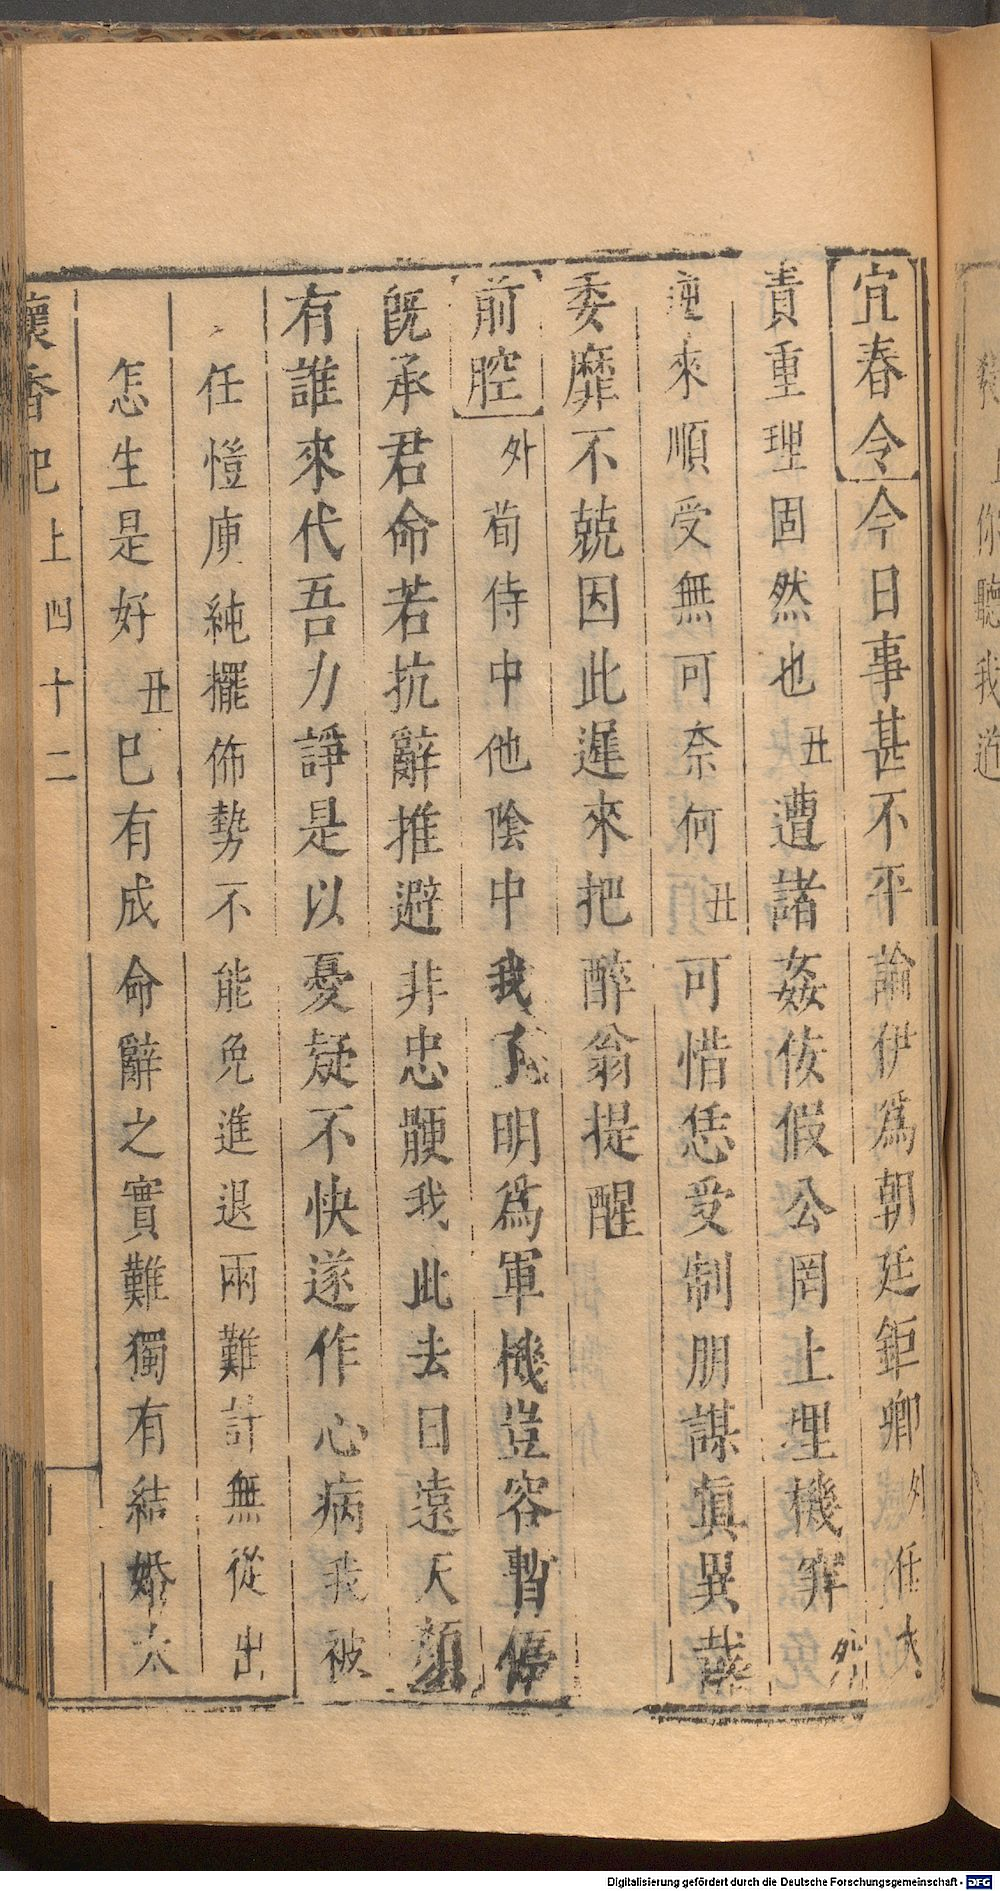 宜春令今日事甚不平論伊爲朝廷鉅卿外任大
責重理固然也丑遭諸姦佞假公罔上埋機穽外
逆來順受無可奈何丑可惜恁受制朋謀眞異哉
委靡不兢因此遲來把醉翁提醒
前腔外荀侍中他陰中我了明爲軍機豈容暫停
旣承君命若抗辭推避非忠骾我此去日遠天顏
有誰來代吾力諍是以憂疑不快遂作心病我被
任愷庾純擺佈勢不能免進退兩難計無從出
怎生是好丑巳有成命辭之實難獨有結婚太
懷香记上四十二
你聽我道
Digitalisierung gefördert durch die Deutsche Forschungsgemeinschaft - DFG